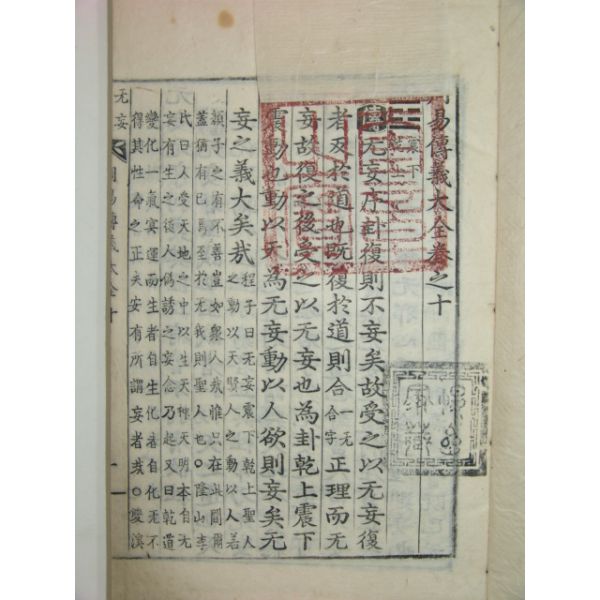 周易傳義大全卷之十
震下
乾上
傳无妄序卦復則不妄矣故受之以无妄復
者反於道也既復於道則合一无合字正理而无
妄故復之後受之以无妄也為卦乾上震下
震動也動以天為无妄動以人欲則妄矣无
妄之義大矣哉程子曰无妄震下乾上聖人
之動以天賢人之動以人若
顏子之有不善豈如衆人哉惟只在此間爾
蓋猶有已焉至於无我則聖人也○隆山李
氏曰人受天地之中以生天種天明本自无
妄有生之後人偽誘之妄念乃起又曰乾道
變化一氣㝠運而生者自生化者自化无不
得其性命之正矣安有所謂妄者哉○雙溪
无妄
周易傳義大全十
一